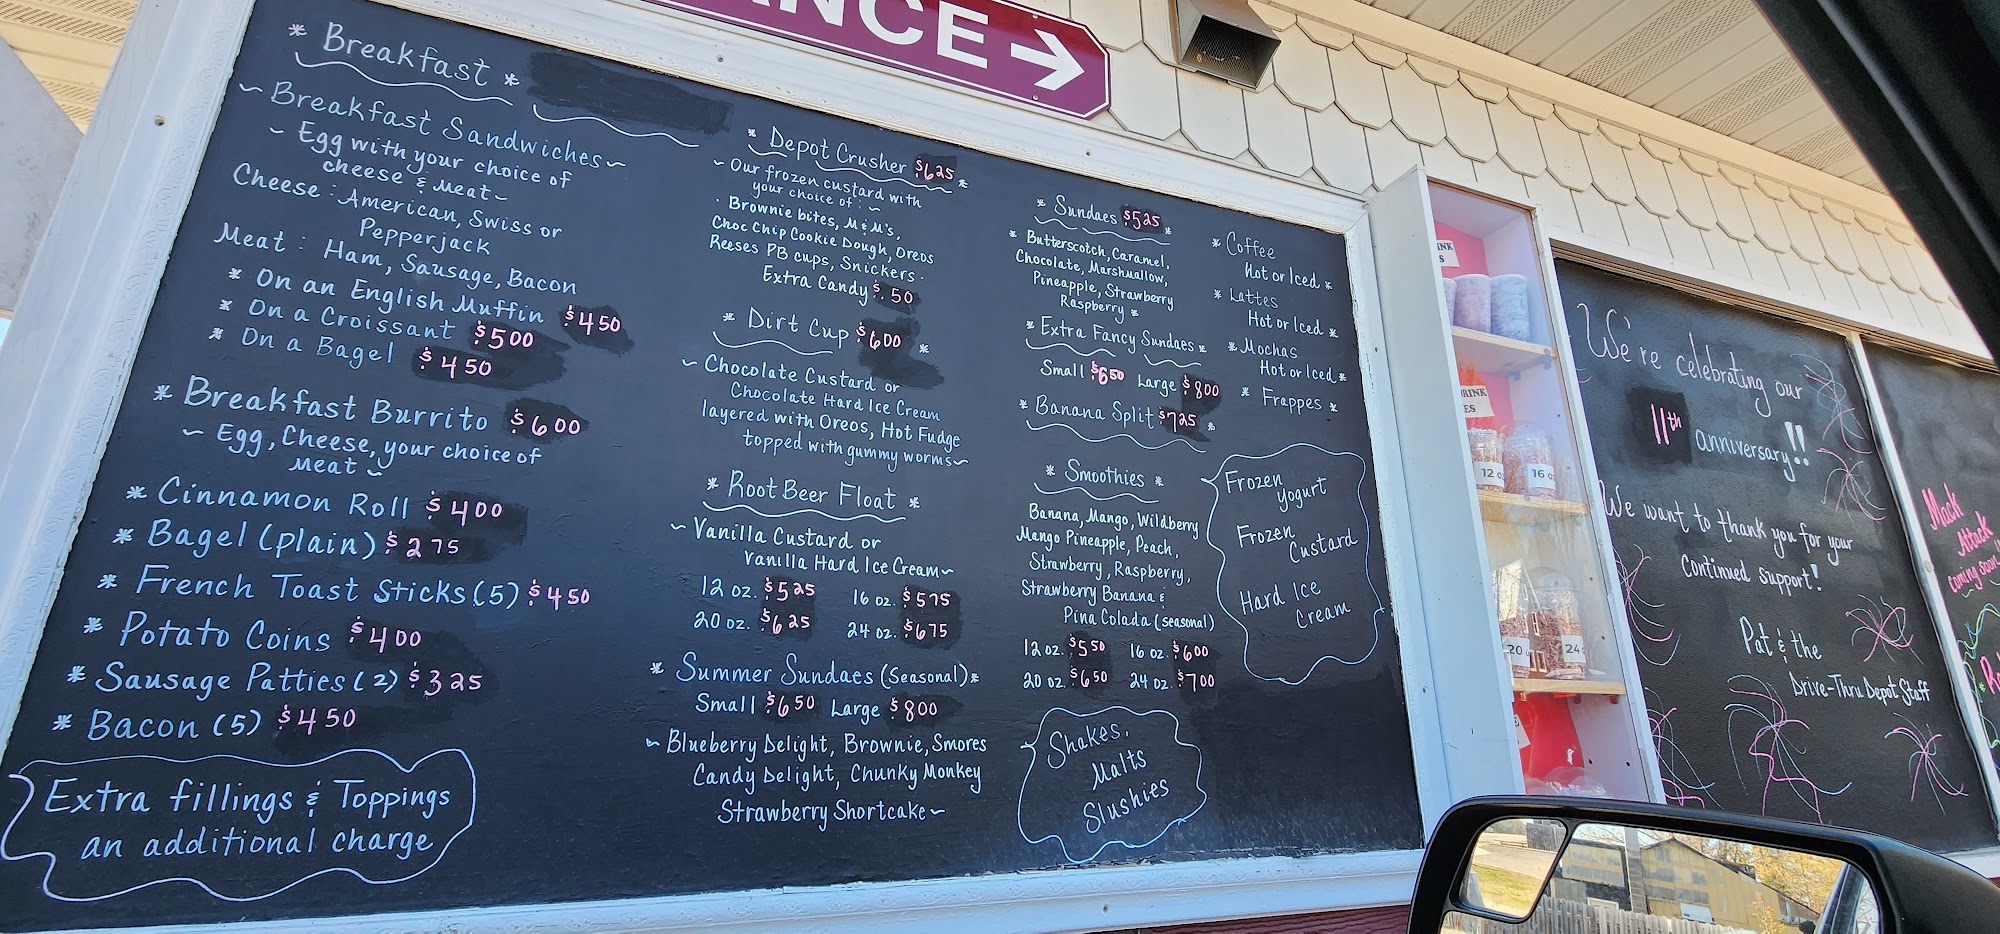 NCE →
* Breakfast *
~ Breakfast Sandwiches ~
~ Egg with your choice of
cheese & meat ~
Cheese: American, Swiss or
Pepperjack
Meat: Ham, Sausage, Bacon
* On an English Muffin $4.50
* On a Croissant $5.00
* On a Bagel $4.50
* Breakfast Burrito $6.00
~ Egg, Cheese, your choice of
meat ~
* Cinnamon Roll $4.00
* Bagel (plain) $2.75
* French Toast Sticks (5) $4.50
* Potato Coins $4.00
* Sausage Patties (2) $3.25
* Bacon (5) $4.50
Extra fillings & Toppings
an additional charge
* Depot Crusher $6.25 *
~ Our frozen custard with
your choice of: ~
· Brownie bites, M&M's,
Choc Chip Cookie Dough, Oreos
Reeses PB cups, Snickers ·
Extra Candy $.50
* Dirt Cup $6.00 *
~ Chocolate Custard or
Chocolate Hard Ice Cream
layered with Oreos, Hot Fudge
topped with gummy worms ~
* Root Beer Float *
~ Vanilla Custard or
Vanilla Hard Ice Cream ~
12 oz. $5.25 16 oz. $5.75
20 oz. $6.25 24 oz. $6.75
* Summer Sundaes (Seasonal) *
Small $6.50 Large $8.00
~ Blueberry Delight, Brownie, Smores
Candy Delight, Chunky Monkey
Strawberry Shortcake ~
* Sundaes $5.25 *
* Butterscotch, Caramel,
Chocolate, Marshmallow,
Pineapple, Strawberry
Raspberry *
* Extra Fancy Sundaes *
Small $6.50 Large $8.00
* Banana Split $7.25 *
* Smoothies *
Banana, Mango, Wildberry
Mango Pineapple, Peach,
Strawberry, Raspberry,
Strawberry Banana &
Pina Colada (seasonal)
12 oz. $5.50 16 oz. $6.00
20 oz. $6.50 24 oz. $7.00
Shakes,
Malts
Slushies
* Coffee
Hot or Iced *
* Lattes
Hot or Iced *
* Mochas
Hot or Iced *
* Frappes *
Frozen
Yogurt
Frozen
Custard
Hard Ice
Cream
INK
S
RINK
ES
12 oz
16 oz
20
24
We're celebrating our
11th anniversary!!
We want to thank you for your
continued support!
Pat & the
Drive-Thru Depot Staff
Mack
Attack
coming soon!